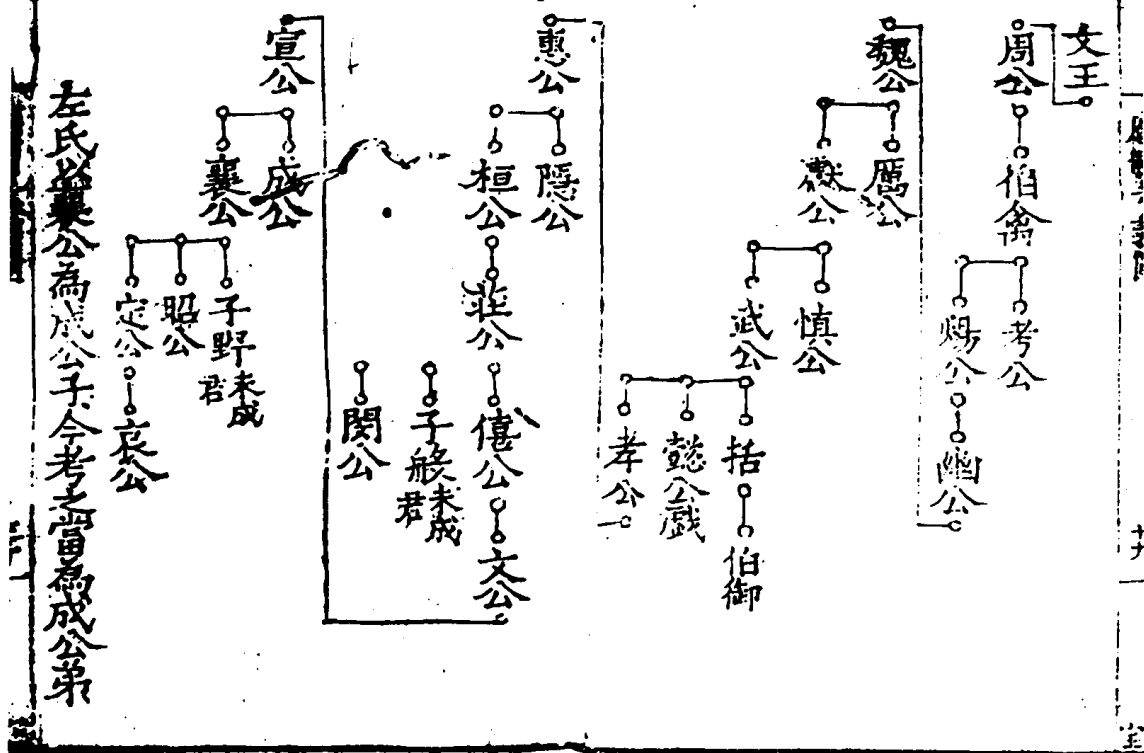 文王
周公
伯禽
考公
煬公
幽公
魏公
厲公
獻公
慎公
武公
括
伯御
懿公戲
孝公
惠公
隱公
桓公
莊公
僖公
文公
子般未成君
閔公
宣公
成公
襄公
子野未成君
昭公
定公
哀公
左氏以襄公為成公子今考之當為成公弟
十九